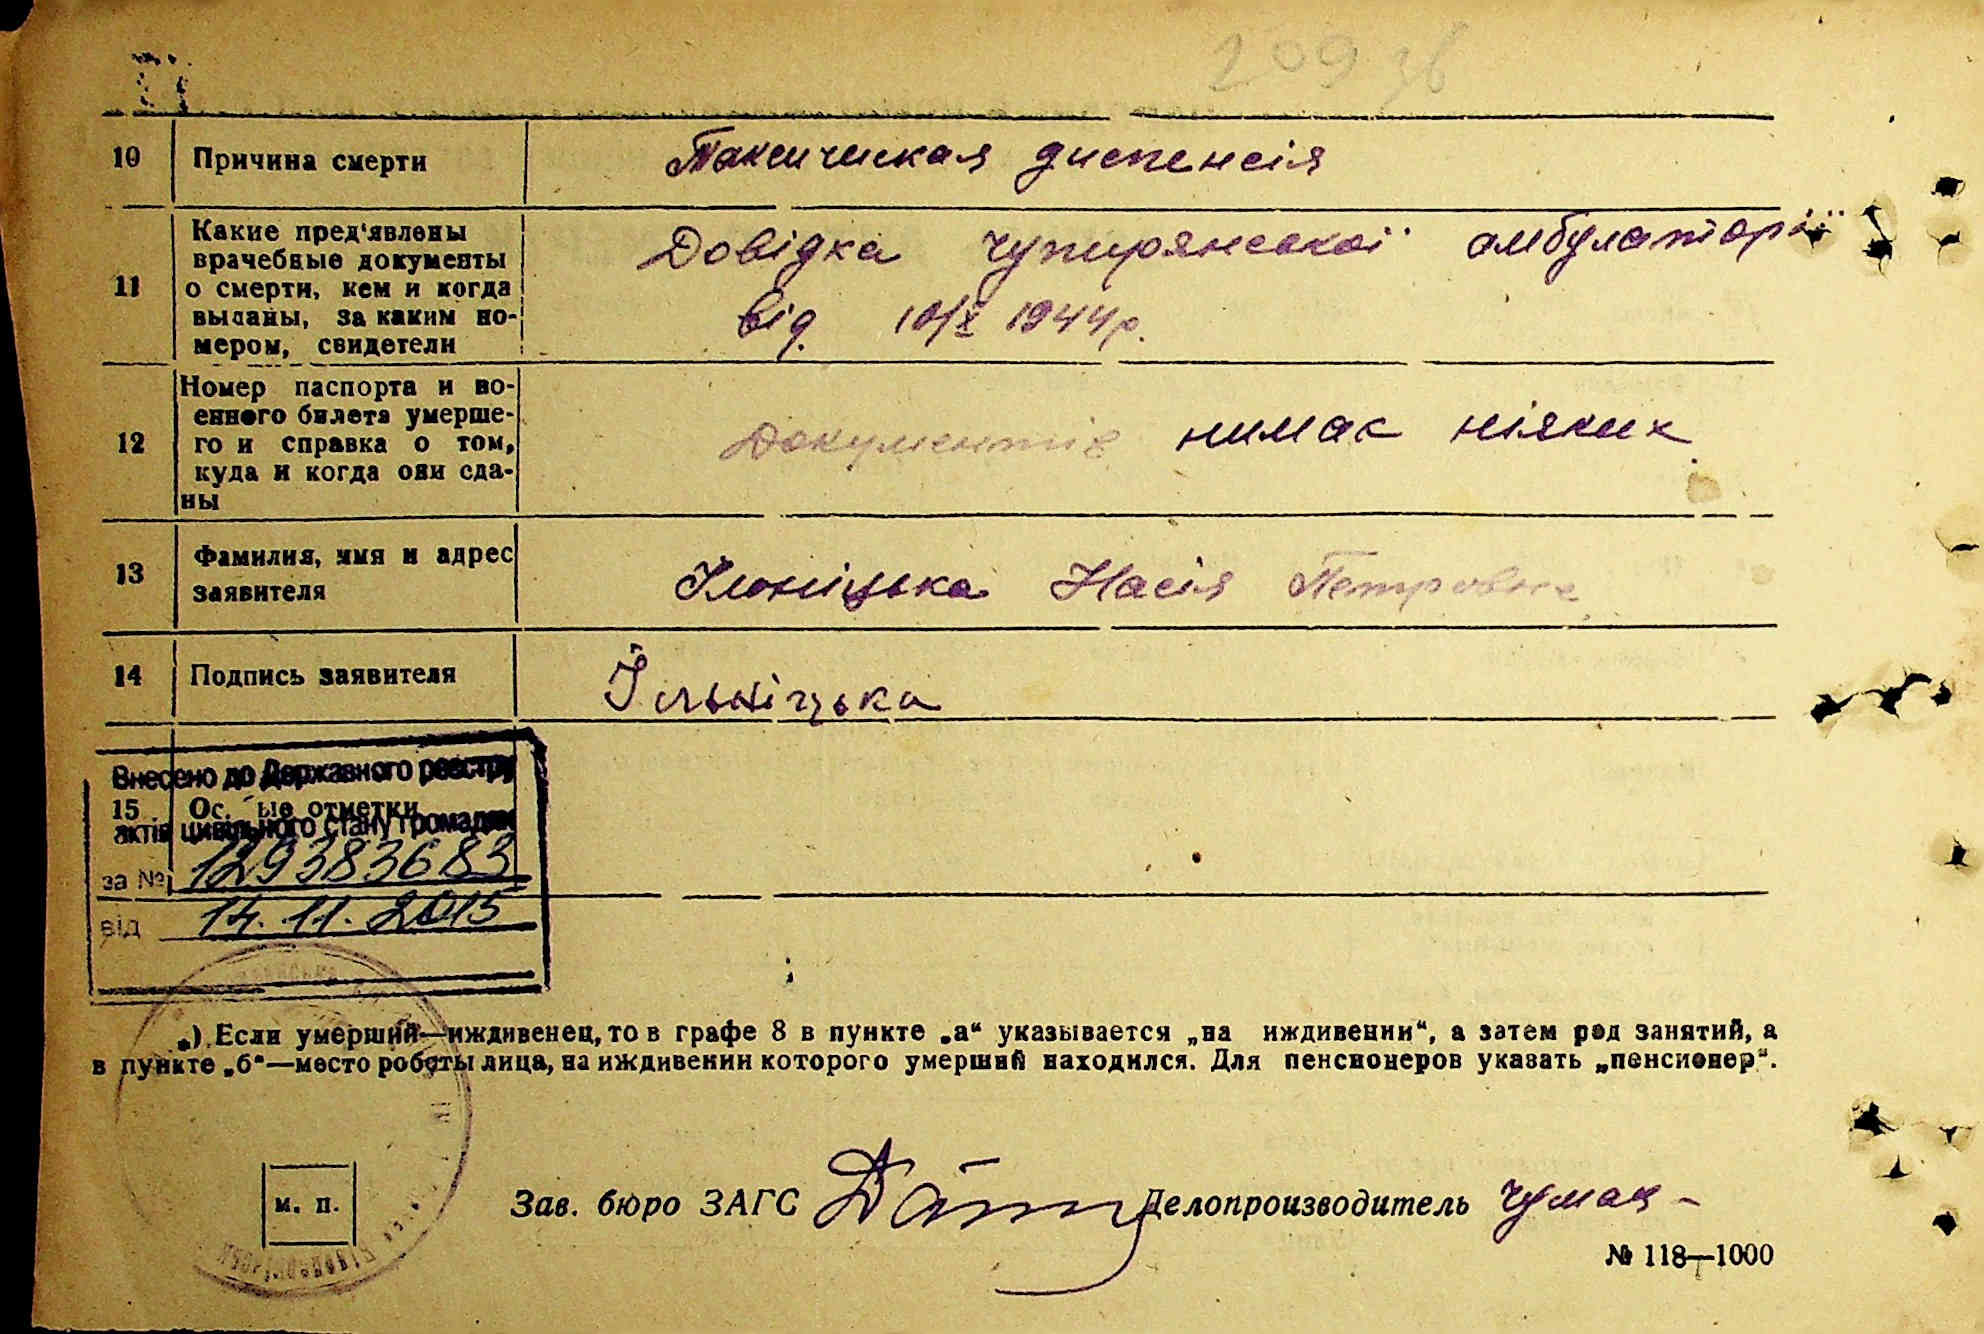 209 зв
10 Причина смерти Таксическая диспенсія
11 Какие пред'явлены врачебные документы о смерти, кем и когда выданы, за каким но-
мером, свидетели
Довідка Чупирянської амбулаторії
від 10/X 1944 р.
12 Номер паспорта и во-
енного билета умерше-
го и справка о том,
куда и когда они сда-
ны
Документів нимає ніяких
13 Фамилия, имя и адрес
заявителя
Ілюніцька Насія Петровна
14 Подпись заявителя Ільніцька
Внесено до Державного реєстру
15 Ос ые отметки
актів цивільного стану громадян
за № 129383683
від 14.11.2015
*) Если умерший—иждивенец, то в графе 8 в пункте „а“ указывается „на иждивении“, а затем род занятий, а
в пункте „б“—место роботы лица, на иждивении которого умерший находился. Для пенсионеров указать „пенсионер“.
м. п.
Зав. бюро ЗАГС Делопроизводитель Чумак
№ 118—1000